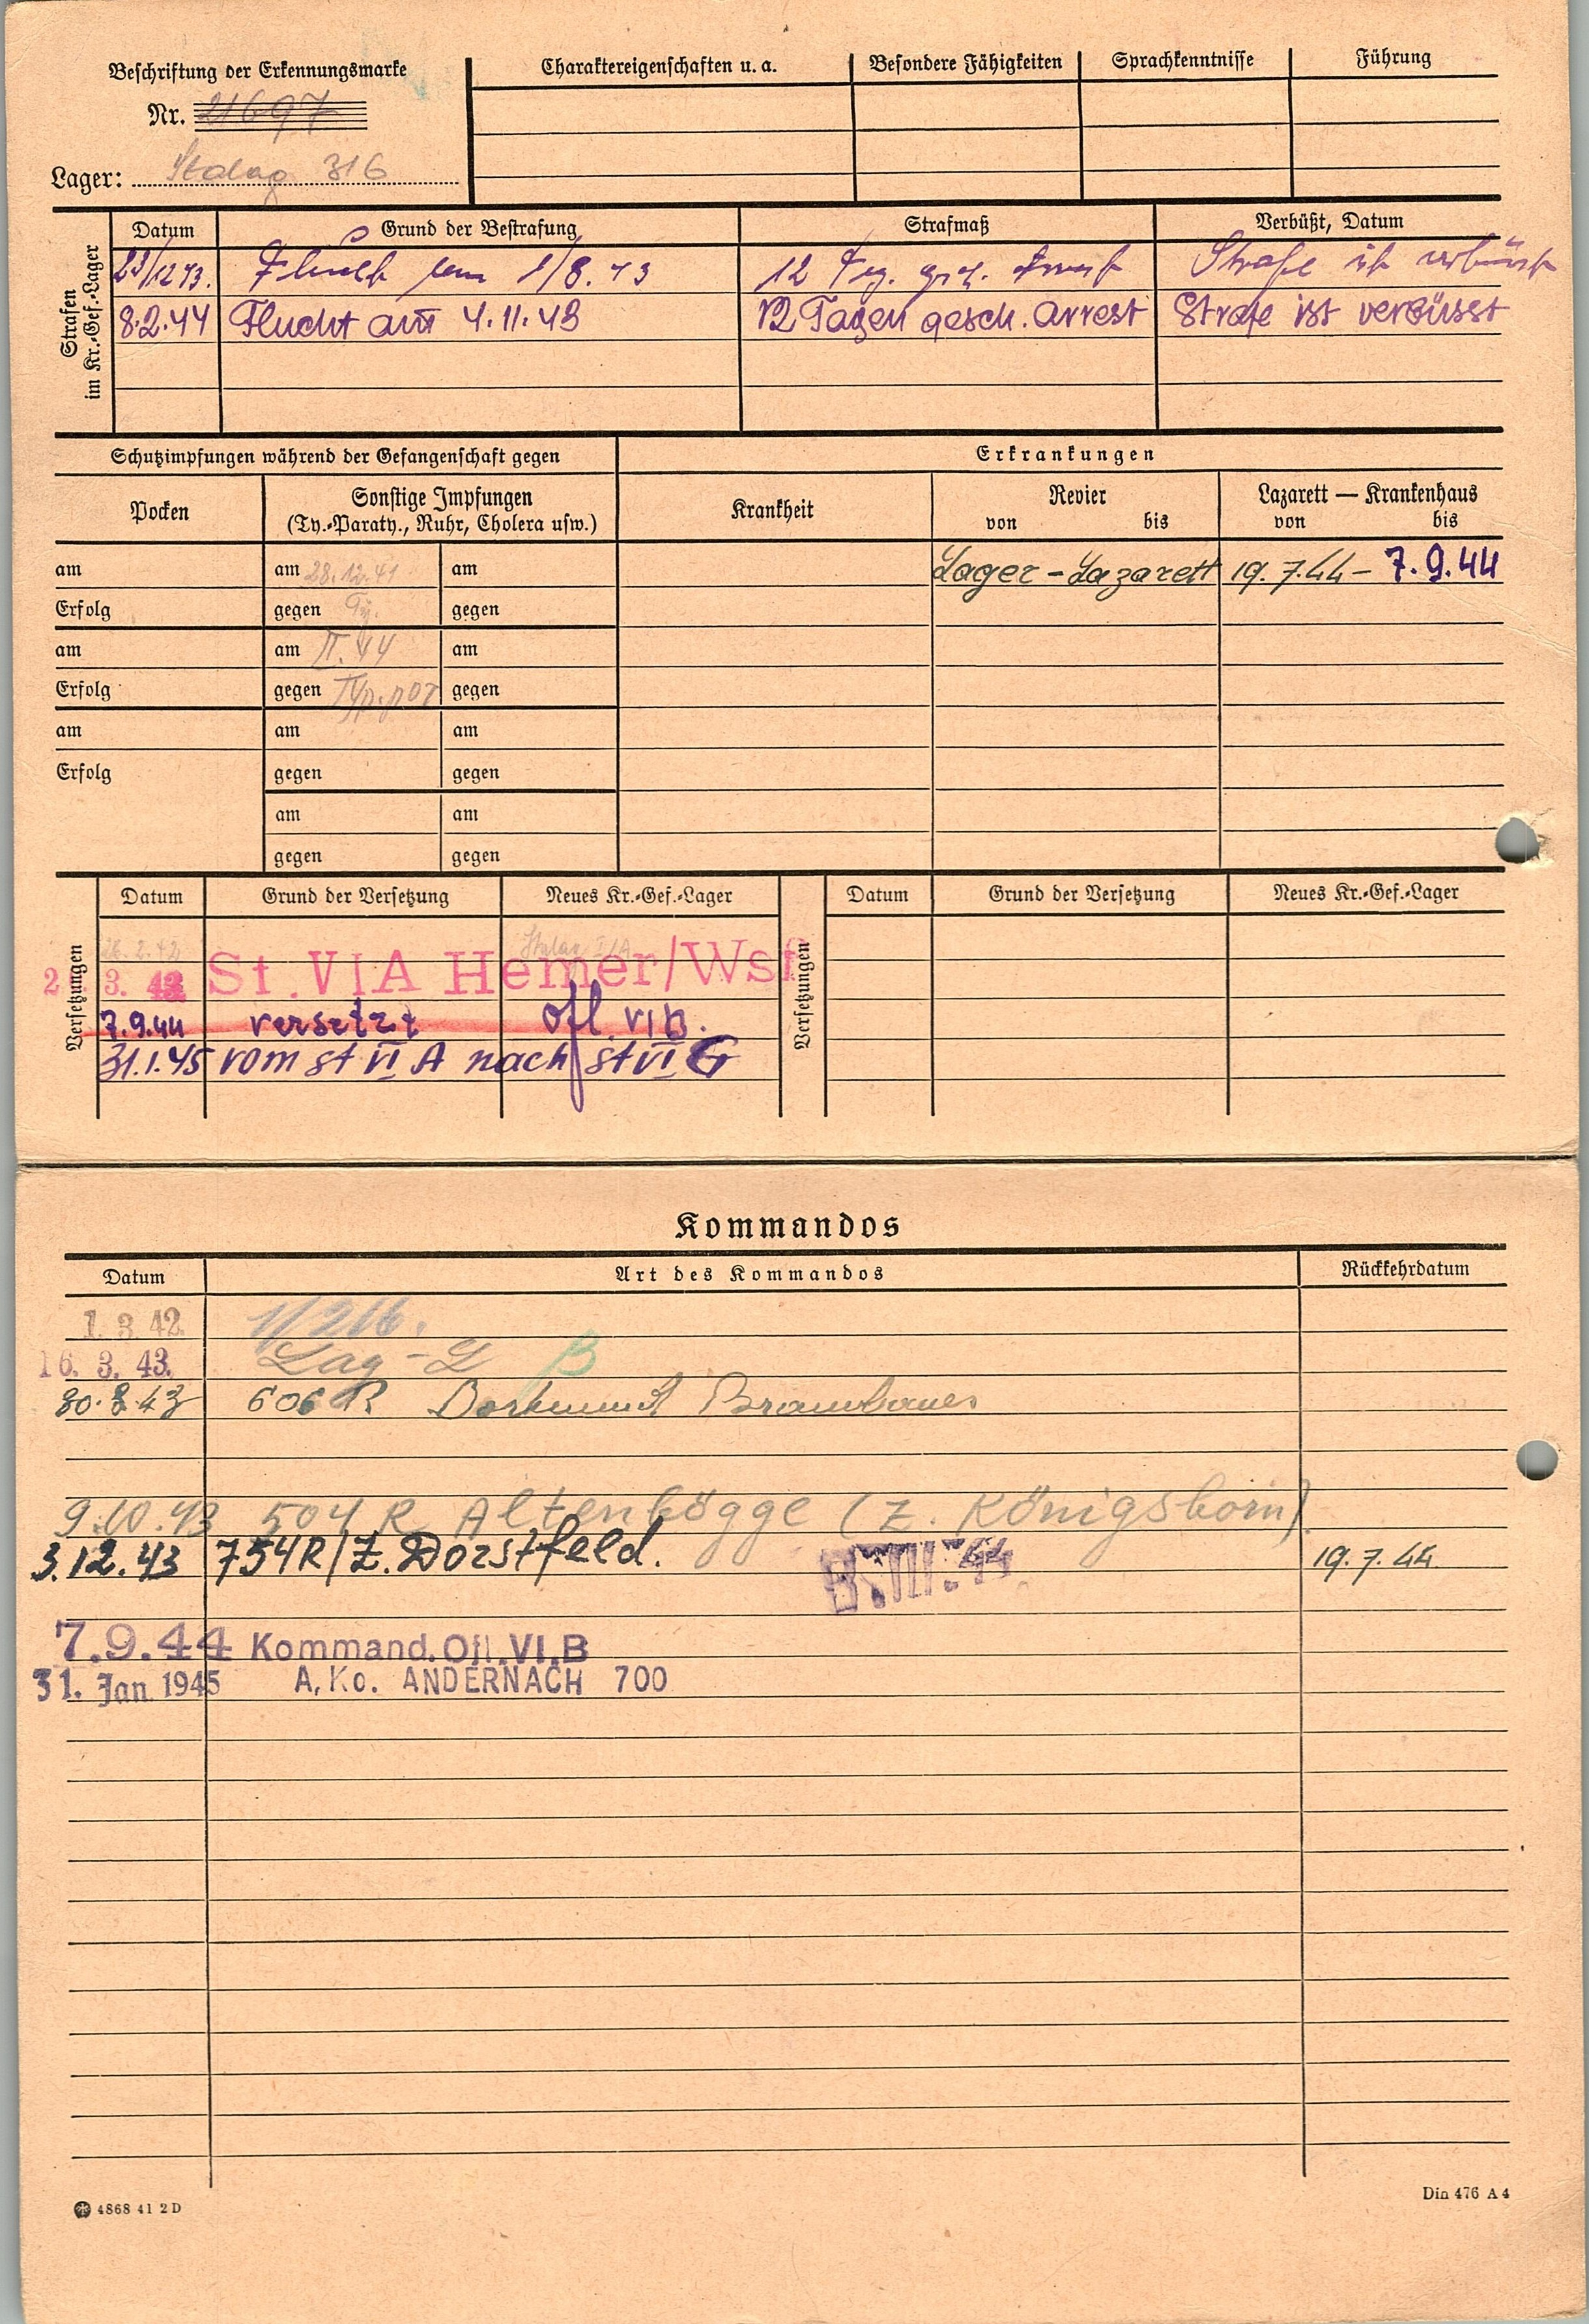 Beschriftung der Erkennungsmarke
Nr. 21697
Lager: Stalag 316
Charaktereigenschaften u. a. Besondere Fähigkeiten Sprachkenntnisse Führung
Strafen im Kr.-Gef.-Lager
Datum Grund der Bestrafung Strafmaß Verbüßt, Datum
23/12 43. Flucht am 1/8. 43 12 Tg. Strafe ist verbüsst
8.2.44 Flucht am 4.11.43 12 Tagen gesch. Arrest Strafe ist verbüsst
Schutzimpfungen während der Gefangenschaft gegen Erkrankungen
Pocken Sonstige Impfungen Krankheit Revier Lazarett — Krankenhaus
(Ty.-Paraty., Ruhr, Cholera usw.) von bis von bis
am am 28.12.41 am Lager - Lazarett 19.7.44 - 7.9.44
Erfolg gegen Ty. gegen
am am II. 44 am
Erfolg gegen gegen
am am am
Erfolg gegen gegen
am am
gegen gegen
Versetzungen
Datum Grund der Versetzung Neues Kr.-Gef.-Lager
26.2.42 Stalag VI/A
3. 42 St. VI A Hemer/Wsf
7.9.44 versetzt Ofl. VI B.
31.1.45 vom St VI A nach St VI G
Versetzungen
Datum Grund der Versetzung Neues Kr.-Gef.-Lager
Kommandos
Datum Art des Kommandos Rückkehrdatum
1. 3. 42. 1/216.
16. 3. 43. Lag - L B
30.8.43 606 R Dortmund Brambauer
9.10.43 504 R Altenbögge (Z. Königsborn)
3.12.43 754R/Z. Dorstfeld. 19.7.44
7.9.44 Kommand. Ofl. VI. B
31. Jan 1945 A. Ko. ANDERNACH 700
4868 41 2 D
Din 476 A 4